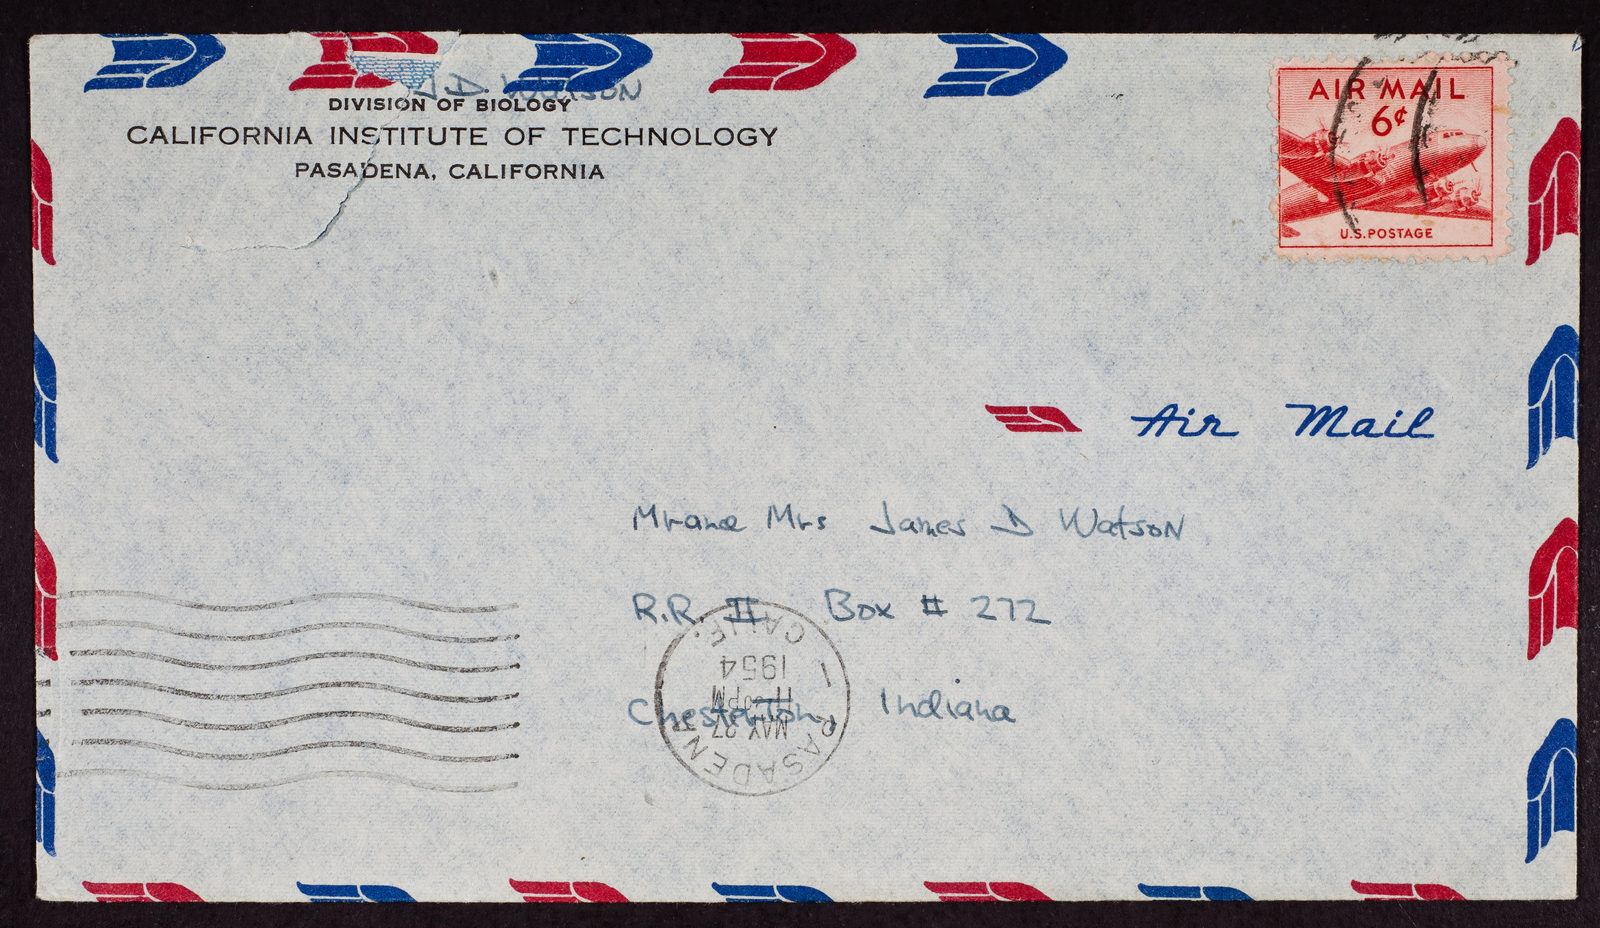 J D. Watson
DIVISION OF BIOLOGY
CALIFORNIA INSTITUTE OF TECHNOLOGY
PASADENA, CALIFORNIA
AIR MAIL
6¢
U.S. POSTAGE
Air Mail
Mr and Mrs James D Watson
R.R. II Box # 272
Chesterton, Indiana
PASADENA CALIF.
MAY 27
PM
1954